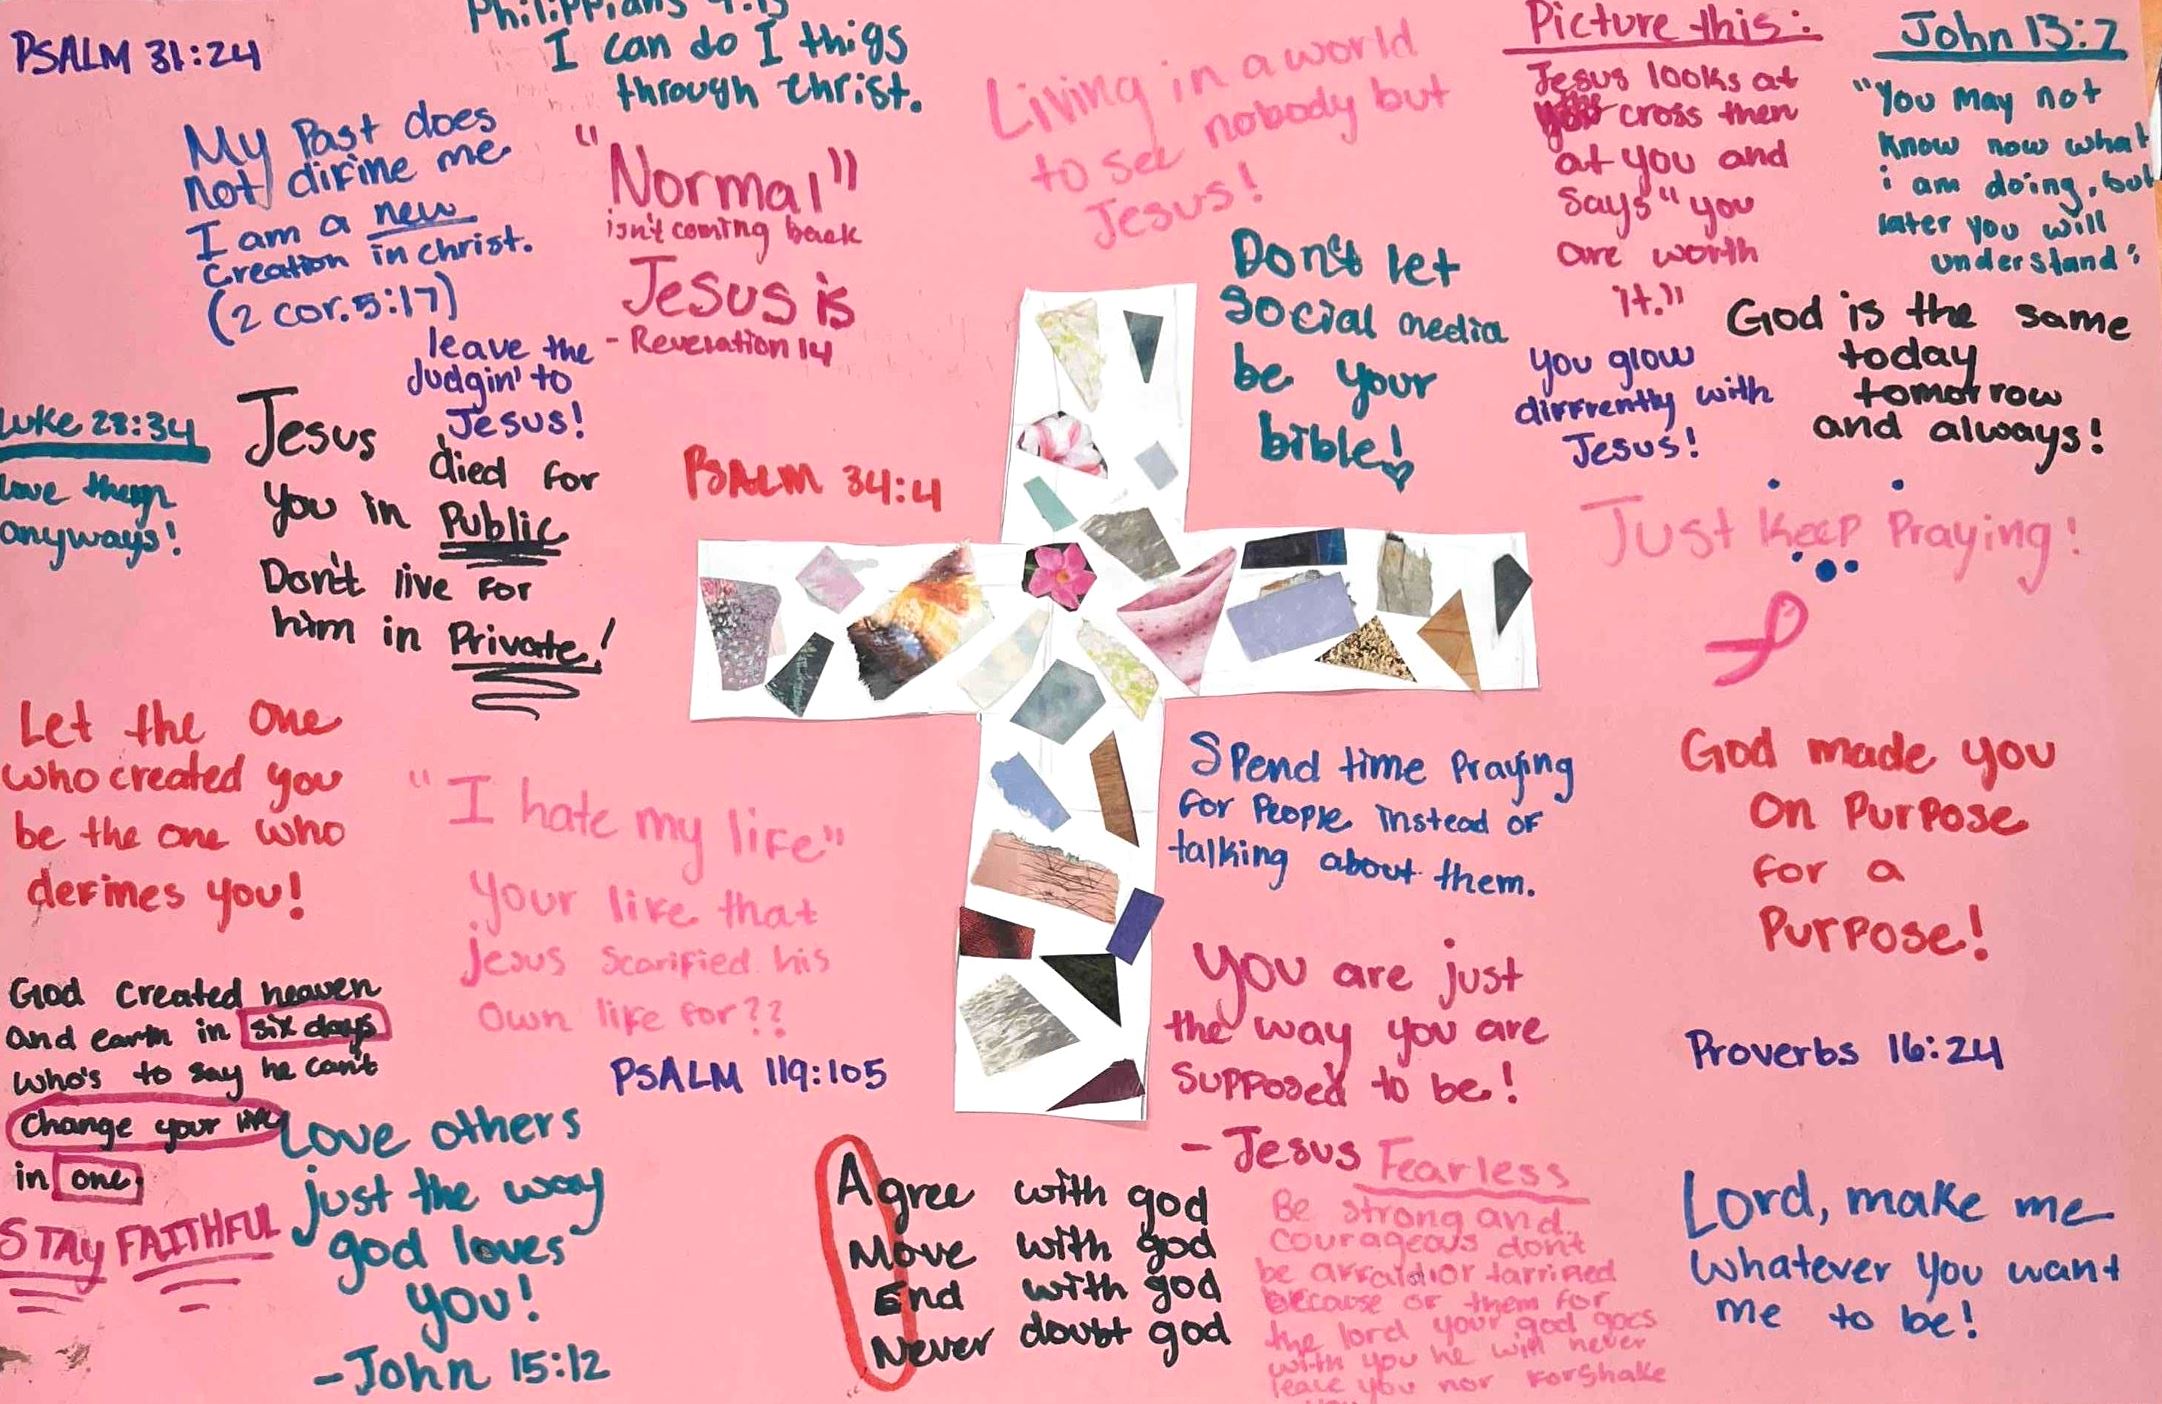 PSALM 31:24
Philippians 4:13
I can do I thigs
through christ.
My Past does
not difine me
I am a new
Creation in christ.
(2 cor. 5:17)
"Normal"
isn't coming back
Jesus is
- Revelation 14
Living in a world
to see nobody but
Jesus!
Picture this:
Jesus looks at
cross then
at you and
says "you
are worth
it."
John 13:7
"You may not
know now what
i am doing, but
later you will
understand"
leave the
Judgin' to
Jesus!
Don't let
social media
be your
bible!
you glow
diffrently with
Jesus!
God is the same
today
tomorrow
and always!
Luke 23:34
love them
anyways!
Jesus died for
you in Public
Don't live for
him in Private!
PSALM 34:4
Just Keep Praying!
Let the One
who created you
be the one who
defines you!
"I hate my life"
Your life that
jesus scarified his
own life for??
Spend time Praying
for People instead of
talking about them.
God made you
On Purpose
for a
Purpose!
God created heaven
and earth in six days
who's to say he can't
change your life
in one
STAY FAITHFUL
PSALM 119:105
You are just
the way you are
supposed to be!
- Jesus
Proverbs 16:24
Love others
just the way
god loves
you!
- John 15:12
Agree with god
Move with god
End with god
Never doubt god
Fearless
Be strong and
courageous don't
be affaid or tarrified
because of them for
the lord your god goes
with you he will never
leave you nor forshake
you
Lord, make me
whatever you want
me to be!